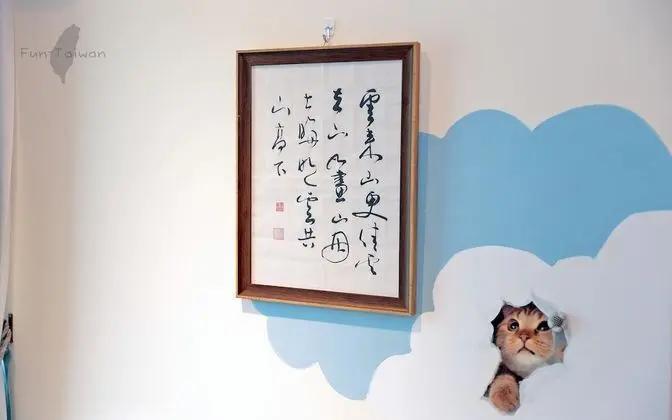 Fun-Taiwan
雲来山更佳雲
去山如畫山因
雲晦明雲共
山高下